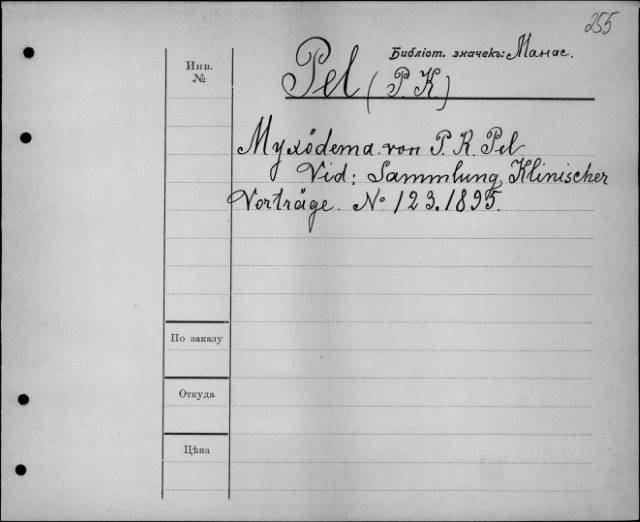 255
Библіот. значекъ: Манас.
Инв.
№
Pel (P. K.)
Myxödema von P. K. Pel
Vid: Sammlung Klinischer
Vorträge. No 123. 1895.
По заказу
Откуда
Цѣна